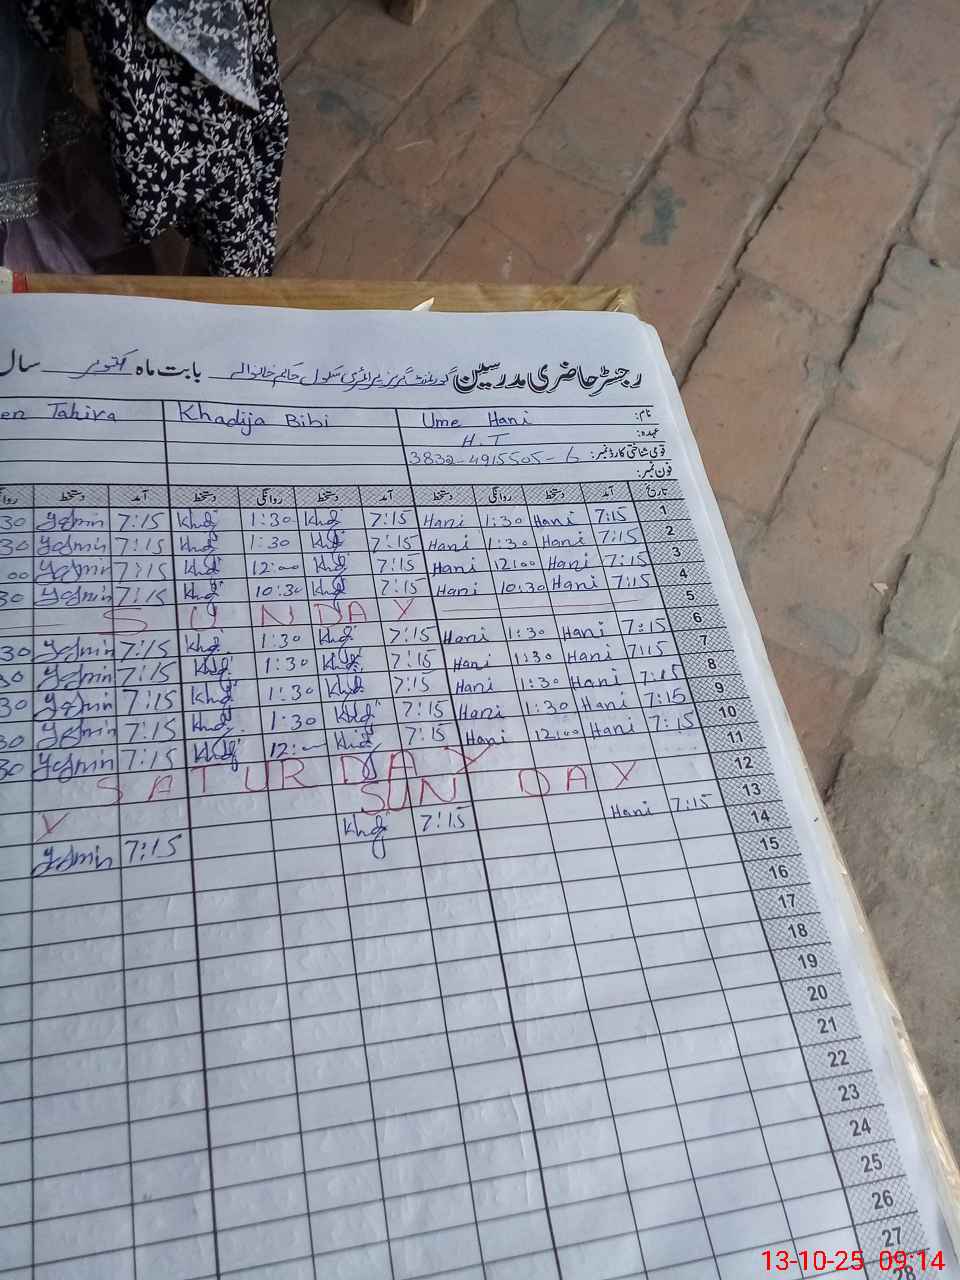 رجسٹر حاضری مدرسین گورنمنٹ گرلز پرائمری سکول حاتم خانوالے بابت ماہ اکتوبر سال
نام: Ume Hani Khadija Bibi en Tahira
عہدہ: H.T
قومی شناختی کارڈ نمبر: 3832-4915505-6
فون نمبر:
تاریخ آمد دستخط روانگی دستخط آمد دستخط روانگی دستخط آمد دستخط روا
1 7:15 Hani 1:30 Hani 7:15 Khdj 1:30 Khdj 7:15 Yasmin 30
2 7:15 Hani 1:30 Hani 7:15 Khdj 1:30 Khdj 7:15 Yasmin 30
3 7:15 Hani 12:00 Hani 7:15 Khdj 12:00 Khdj 7:15 Yasmin 00
4 7:15 Hani 10:30 Hani 7:15 Khdj 10:30 Khdj 7:15 Yasmin 30
5 SUNDAY
6 7:15 Hani 1:30 Hani 7:15 Khdj 1:30 Khdj 7:15 Yasmin 30
7 7:15 Hani 1:30 Hani 7:15 Khdj 1:30 Khdj 7:15 Yasmin 30
8 7:15 Hani 1:30 Hani 7:15 Khdj 1:30 Khdj 7:15 Yasmin 30
9 7:15 Hani 1:30 Hani 7:15 Khdj 1:30 Khdj 7:15 Yasmin 30
10 7:15 Hani 12:00 Hani 7:15 Khdj 12:00 Khdj 7:15 Yasmin 30
11 SATURDAY
12 SUNDAY Y
13 7:15 Hani 7:15 Khdj 7:15 Yasmin
14
15
16
17
18
19
20
21
22
23
24
25
26
27
28
13-10-25 09:14